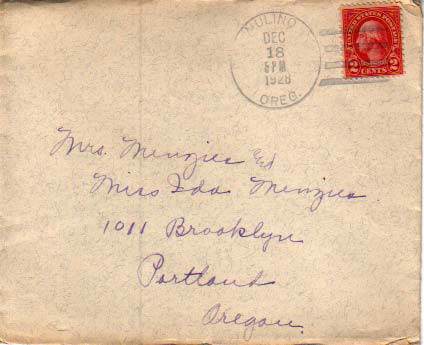 MULINO
DEC
18
5 PM
1928
OREG.
UNITED STATES POSTAGE
2 CENTS 2
Mrs. Menzies &
Miss Ida Menzies.
1011 Brooklyn
Portland
Oregon.